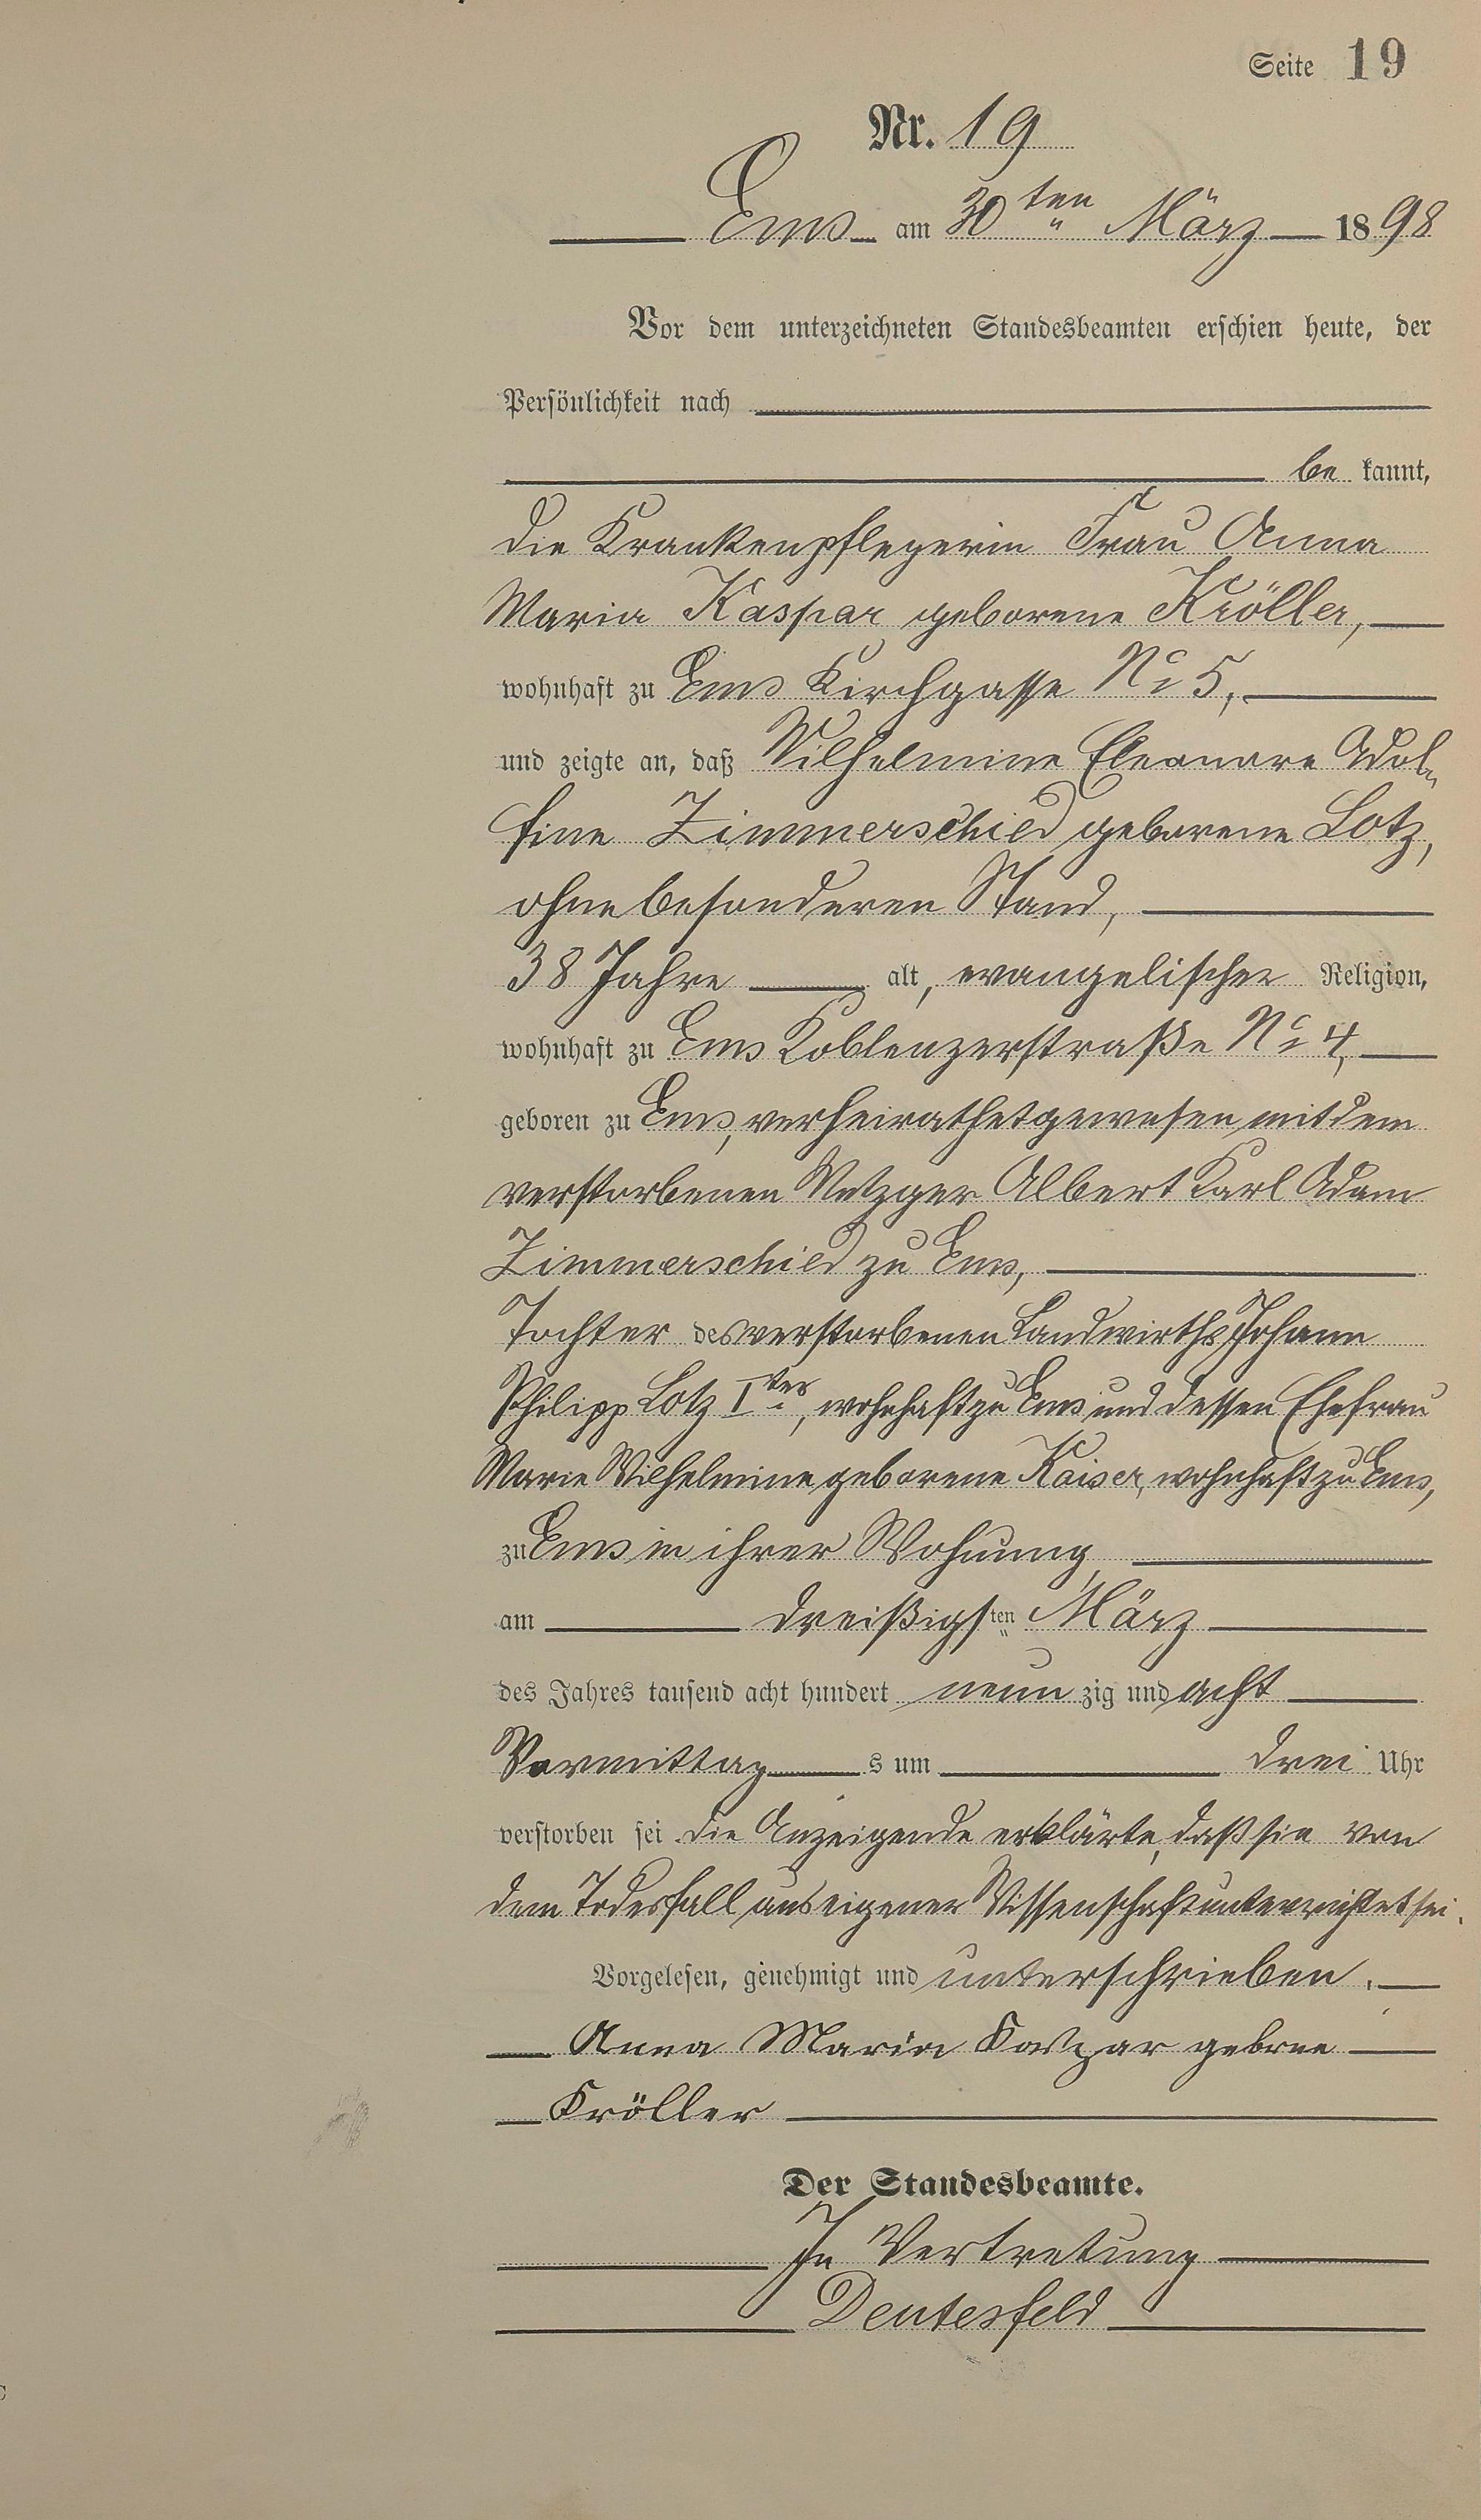 Seite 19
Nr. 19
Ems am 30ten März 1898
Vor dem unterzeichneten Standesbeamten erschien heute, der
Persönlichkeit nach
be kannt,
die Krankenpflegerin Frau Anna
Maria Kaspar geborene Kröller,
wohnhaft zu Ems Kirchgasse No 5,
und zeigte an, daß Wilhelmine Eleonore Adol-
fine Zimmerschied geborene Lotz,
ohne besonderen Stand,
38 Jahre alt, evangelischer Religion,
wohnhaft zu Ems Koblenzerstraße No 4,
geboren zu Ems, verheirathet gewesen mit dem
verstorbenen Metzger Albert Karl Adam
Zimmerschied zu Ems,
Tochter des verstorbenen Landwirths Johann
Philipp Lotz Iter, wohnhaft zu Ems und dessen Ehefrau
Marie Wilhelmine geborene Kaiser, wohnhaft zu Ems,
zu Ems in ihrer Wohnung,
am dreißigsten März
des Jahres tausend acht hundert neun zig und acht
Vormittag s um drei Uhr
verstorben sei. Die Anzeigende erklärte, daß sie von
dem Todesfall aus eigener Wissenschaft unterrichtet sei.
Vorgelesen, genehmigt und unterschrieben.
Anna Maria Kaspar geborne
Kröller
Der Standesbeamte.
In Vertretung
Deutesfeld